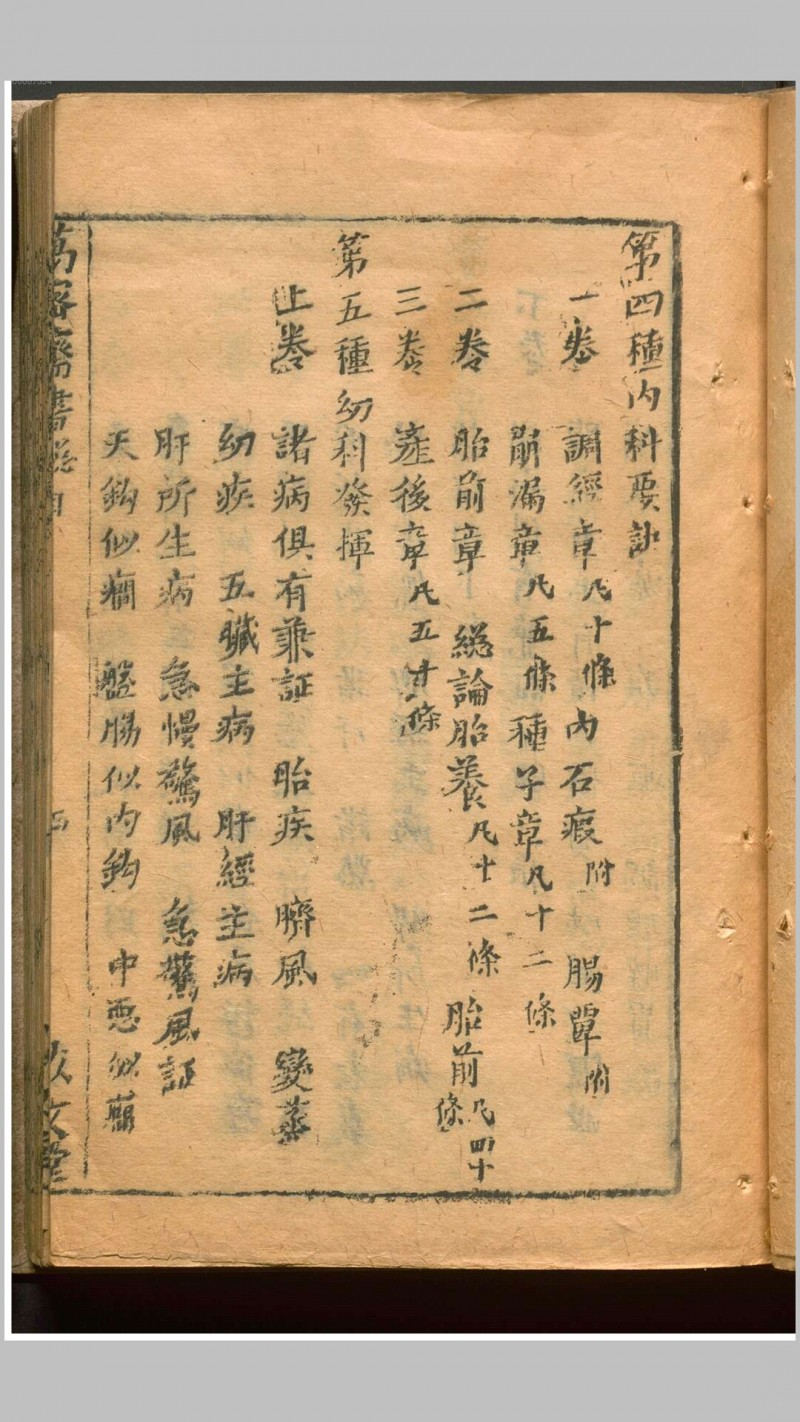 第四種内科要訣
一卷 調經章凡十條 內石瘕附 腸覃附
崩漏章凡五條 種子章凡十二條
二卷 胎前章 総論胎養凡十二條 胎前凡四十條
三卷 產後章凡五十條
第五種幼科發揮
上卷 諸病俱有兼証 胎疾 臍風 變蒸
幼疾 五臟主病 肝經主病
肝所生病 急慢驚風 急驚風証
天鈎似癎 盤腸似内鈎 中惡似癎
萬密齋書 目